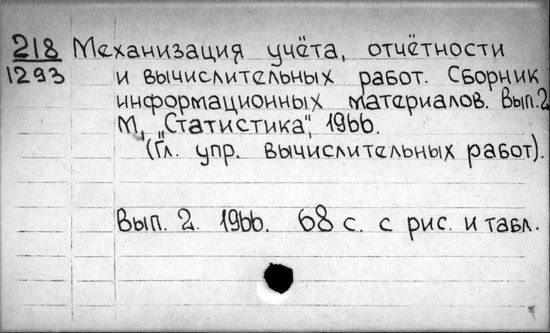 218 Механизация учёта, отчётности
1293 и вычислительных работ. Сборник
информационных материалов. Вып.2
М., "Статистика", 1966.
(Гл. упр. вычислительных работ).
Вып. 2. 1966. 68 с. с рис. и табл.